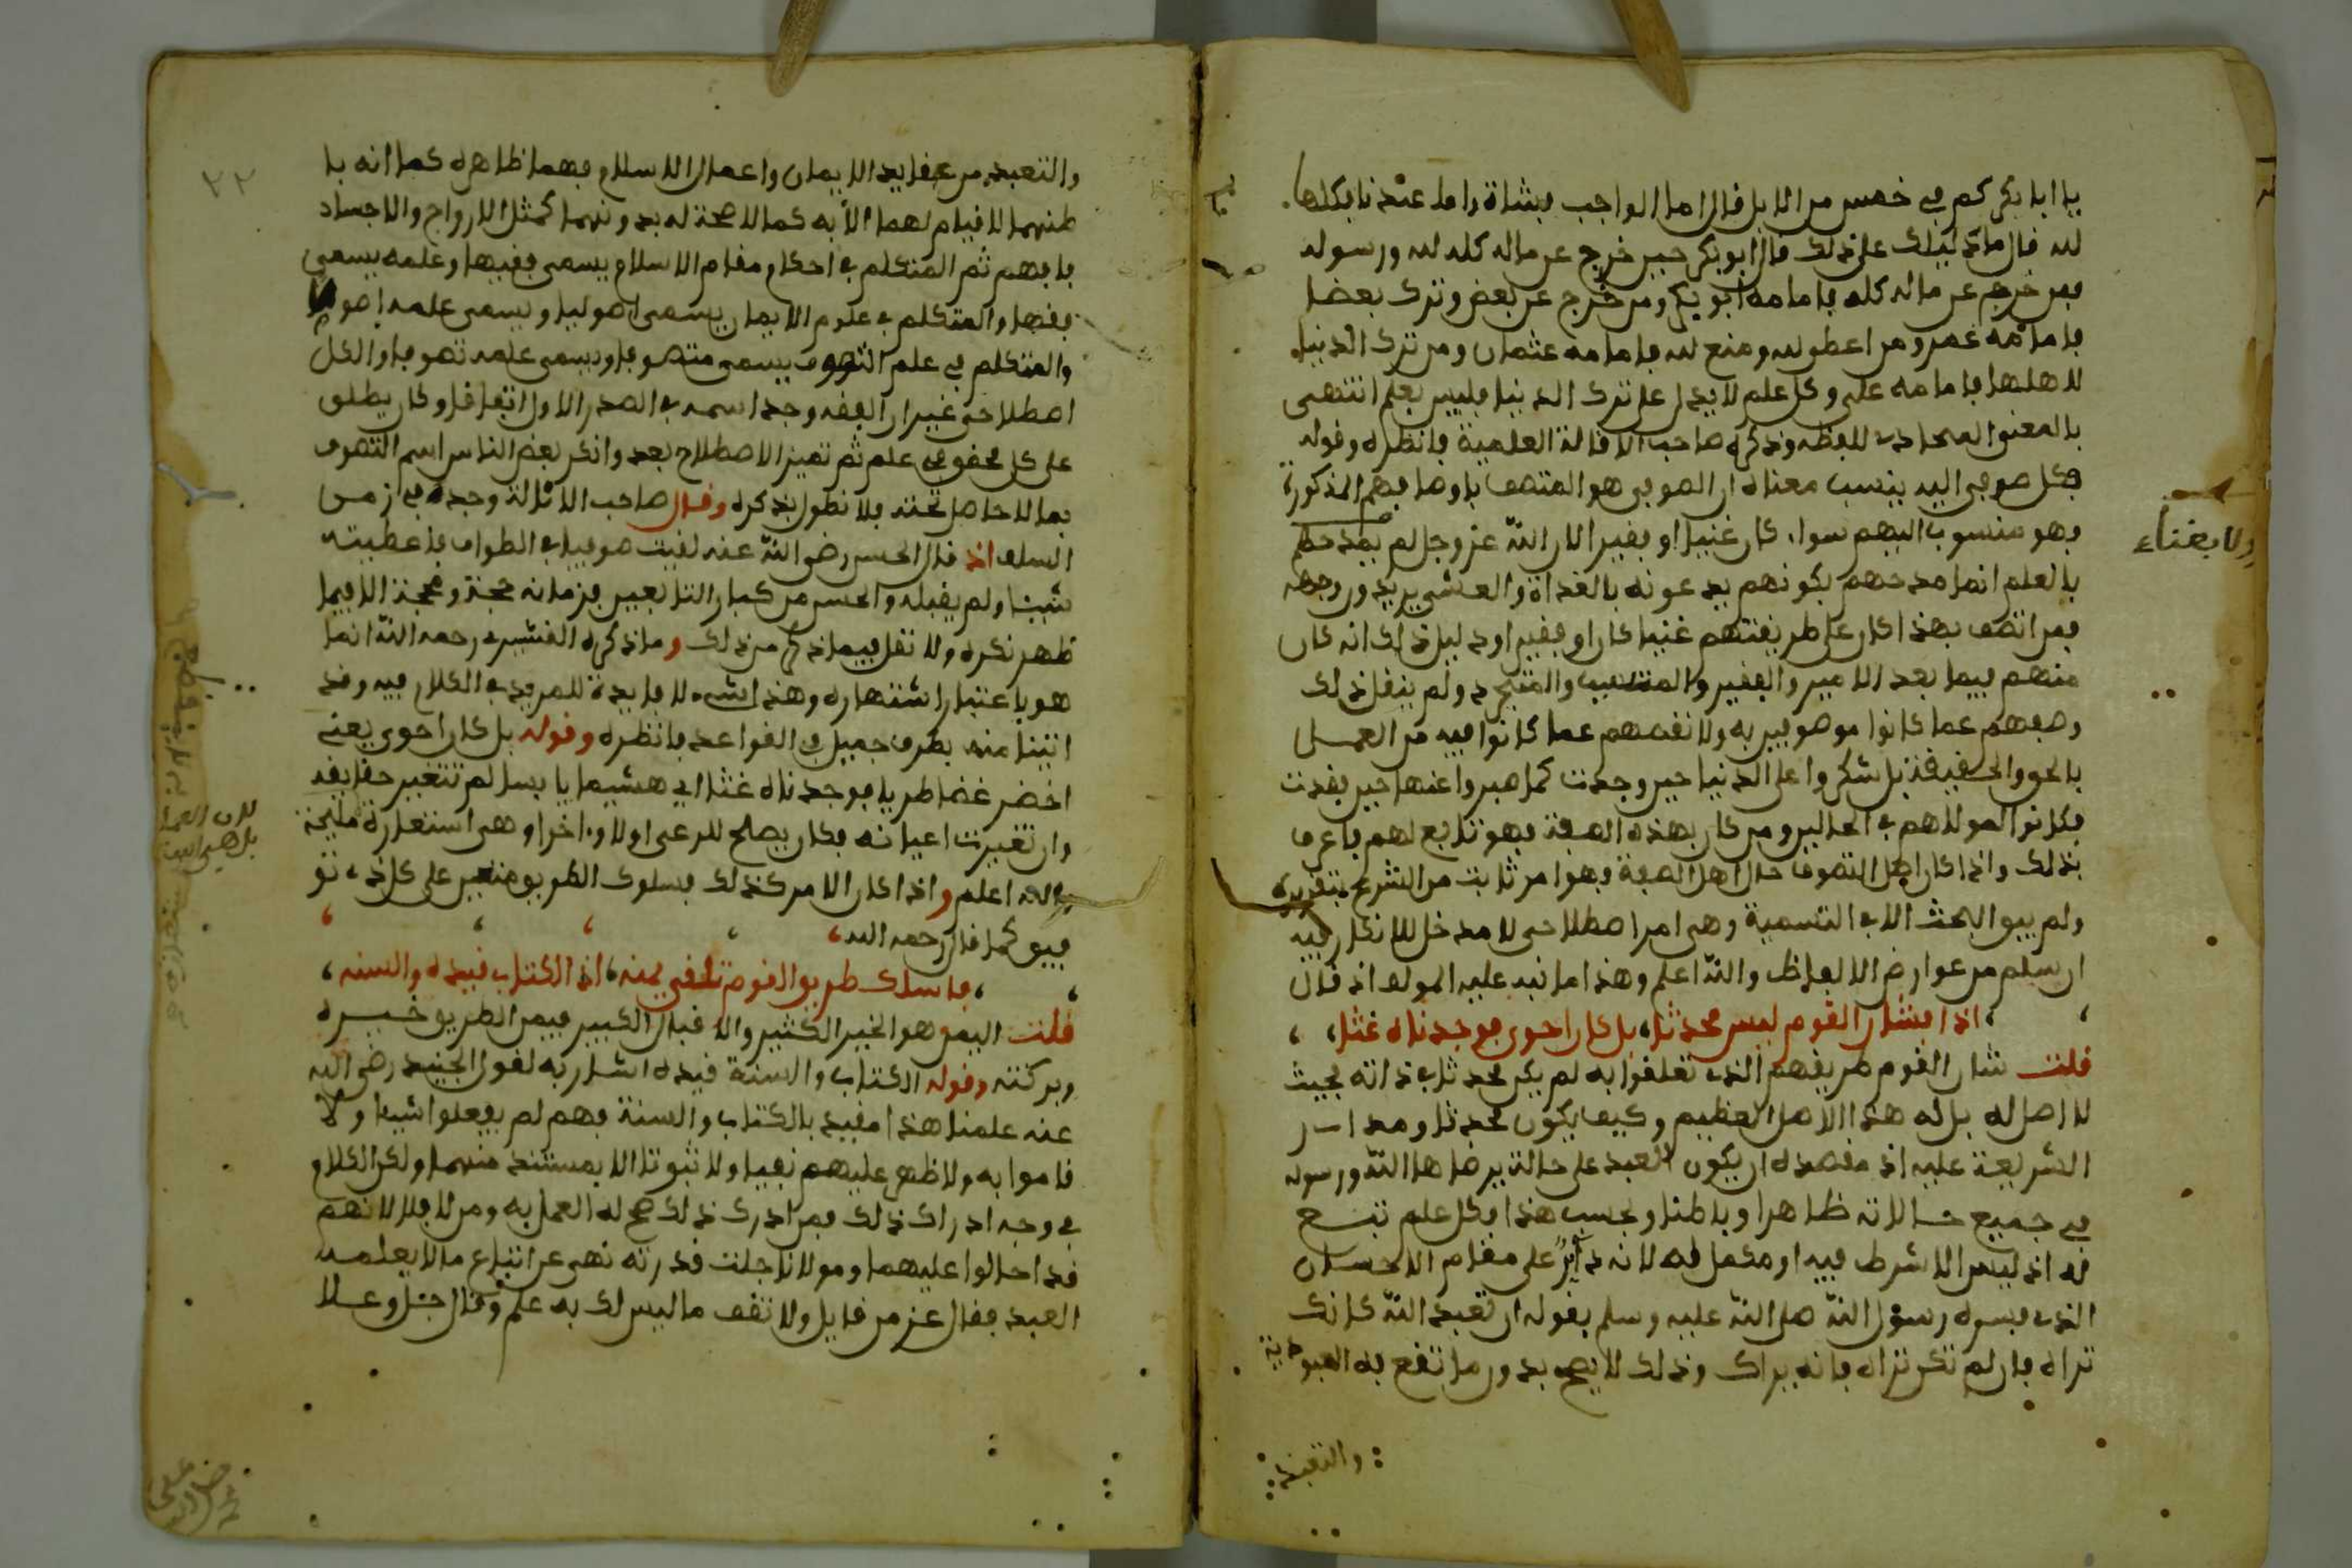 يا ابا بكر كم في خمس من الابل قال اما الواجب فشاة واما عندنا فكلها
لله قال ما دليلك على ذلك قال ابو بكر حين خرج عن ماله كله لله ورسوله
فمن خرج عن ماله كله فامامه ابو بكر ومن خرج عن بعض وترك بعضا
فامامه عمر ومن اعطى لله ومنع لله فامامه عثمان ومن ترك الدنيا
لاهلها فامامه علي وكل علم لا يدل على ترك الدنيا فليس بعلم انتهى
بالمعنى المحاذي للفظه وذكره صاحب الاقالة العلمية فانظره وقوله
فكل صوفي اليه ينسب معناه ان الصوفي هو المتصف باوصافهم المذكورة
فهو منسوب اليهم سواء كان غنيا او فقيرا لان الله عز وجل لم يمدحهم
ولا بغناء
بالعلم انما مدحهم بكونهم يدعونه بالغداة والعشي يريدون وجهه
فمن اتصف بهذا كان على طريقتهم غنيا كان او فقيرا ودليل ذلك انه كان
منهم فيما بعد الامير والفقير والمتسبب والمتجرد ولم ينقل ذلك
وصفهم عما كانوا موصوفين به ولا نقصهم عما كانوا فيه من العمل
بالحق والحقيقة بل شكروا على الدنيا حين وجدت كما صبروا عنها حين فقدت
فكانوا لمولاهم في الحالين ومن كان بهذه الصفة فهو تابع لهم فاعرف
ذلك واذا كان اهل التصوف حال اهل الصفة فهو امر ثابت من الشرع بتقريره
ولم يبق البحث الا في التسمية وهي امر اصطلاحي لا مدخل للانكار فيه
ان سلم من عوارض الالفاظ والله اعلم وهذا ما نبه عليه المولف اذ قال
اذا فشان القوم ليس محدثا، بل كان احوى فوجدناه غثا،
قلت شان القوم طريقهم الذي تعلقوا به لم يكن محدثا في ذاته بحيث
لا اصل له بل له هذا الاصل العظيم وكيف يكون محدثا ومدار
الشريعة عليه اذ مقصده ان يكون العبد على حالة يرضاها الله ورسوله
في جميع حالاته ظاهرا وباطنا وبحسب هذا فكل علم تبع
له اذ ليس الا شرط فيه او مكمل له لانه دائر على مقام الاحسان
الذي فسره رسول الله صلى الله عليه وسلم بقوله ان تعبد الله كانك
تراه فان لم تكن تراه فانه يراك وذلك لا يصح بدون ما تقع به العبودية
والتعبد
٢٢
والتعبد من عقايد الايمان واعمال الاسلام فهما ظاهره كما انه با
طنهما لا قيام لهما الا به كما لا صحة له بدونهما كمثل الارواح والاجساد
فافهم ثم المتكلم في احكام مقام الاسلام يسمى فقيها وعلمه يسمى
فقها والمتكلم في علوم الايمان يسمى اصوليا ويسمى علمه اصولا
والمتكلم في علم التصوف يسمى متصوفا ويسمى علمه تصوفا والكل
اصطلاحي غير ان الفقه وجد اسمه في الصدر الاول اتفاقا وكان يطلق
على كل محقق في علم ثم تميز الاصطلاح بعد وانكر بعض الناس اسم التصوف
بما لا حاصل تحته فلا نطول بذكره وقال صاحب الانالة وجدته في زمن
السلف اذ قال الحسن رضي الله عنه لقيت صوفيا في الطواف فاعطيته
شيئا ولم يقبله والحسن من كبار التابعين فزمانه حجة وحجة الا فيما
ظهر نكره ولا نقل فيما ذكر من ذلك وما ذكره القشيري رحمه الله انما
هو باعتبار اشتهاره وهذا شيء لا فايدة للمريد في الكلام فيه وقد
اتينا منه بطرف جميل في القواعد فانظره وقوله بل كان احوى يعني
اخضر غضا طريا فوجدناه غثا اي هشيما يابسا لم تتغير حقايقه
وان تغيرت اعيانه فكان يصلح للرعي اولا واخرا وهي استعارة مليحة
والله اعلم واذا كان الامر كذلك فسلوك الطريق متعين على كل ذي تو
فيق كما قال رحمه الله
فاسلك طريق القوم تلقى يمنه، اذ الكتاب قيده والسنه،
قلت اليمن هو الخير الكثير والاقبال الكبير فيمن الطريق خيره
وبركته وقوله الكتاب والسنة قيده اشار به لقول الجنيد رضي الله
عنه علمنا هذا مقيد بالكتاب والسنة فهم لم يفعلوا شيئا ولا
قاموا به ولا ظهر عليهم نفيا ولا ثبوتا الا بمستند منهما ولكن الكلام
في وجه ادراك ذلك فمن ادرك ذلك صح له العمل به ومن لا فلا لانهم
قد احالوا عليهما ومولانا جلت قدرته نهى عن اتباع ما لا يعلمه
العبد فقال عز من قايل ولا تقف ما ليس لك به علم وقال جل وعلا